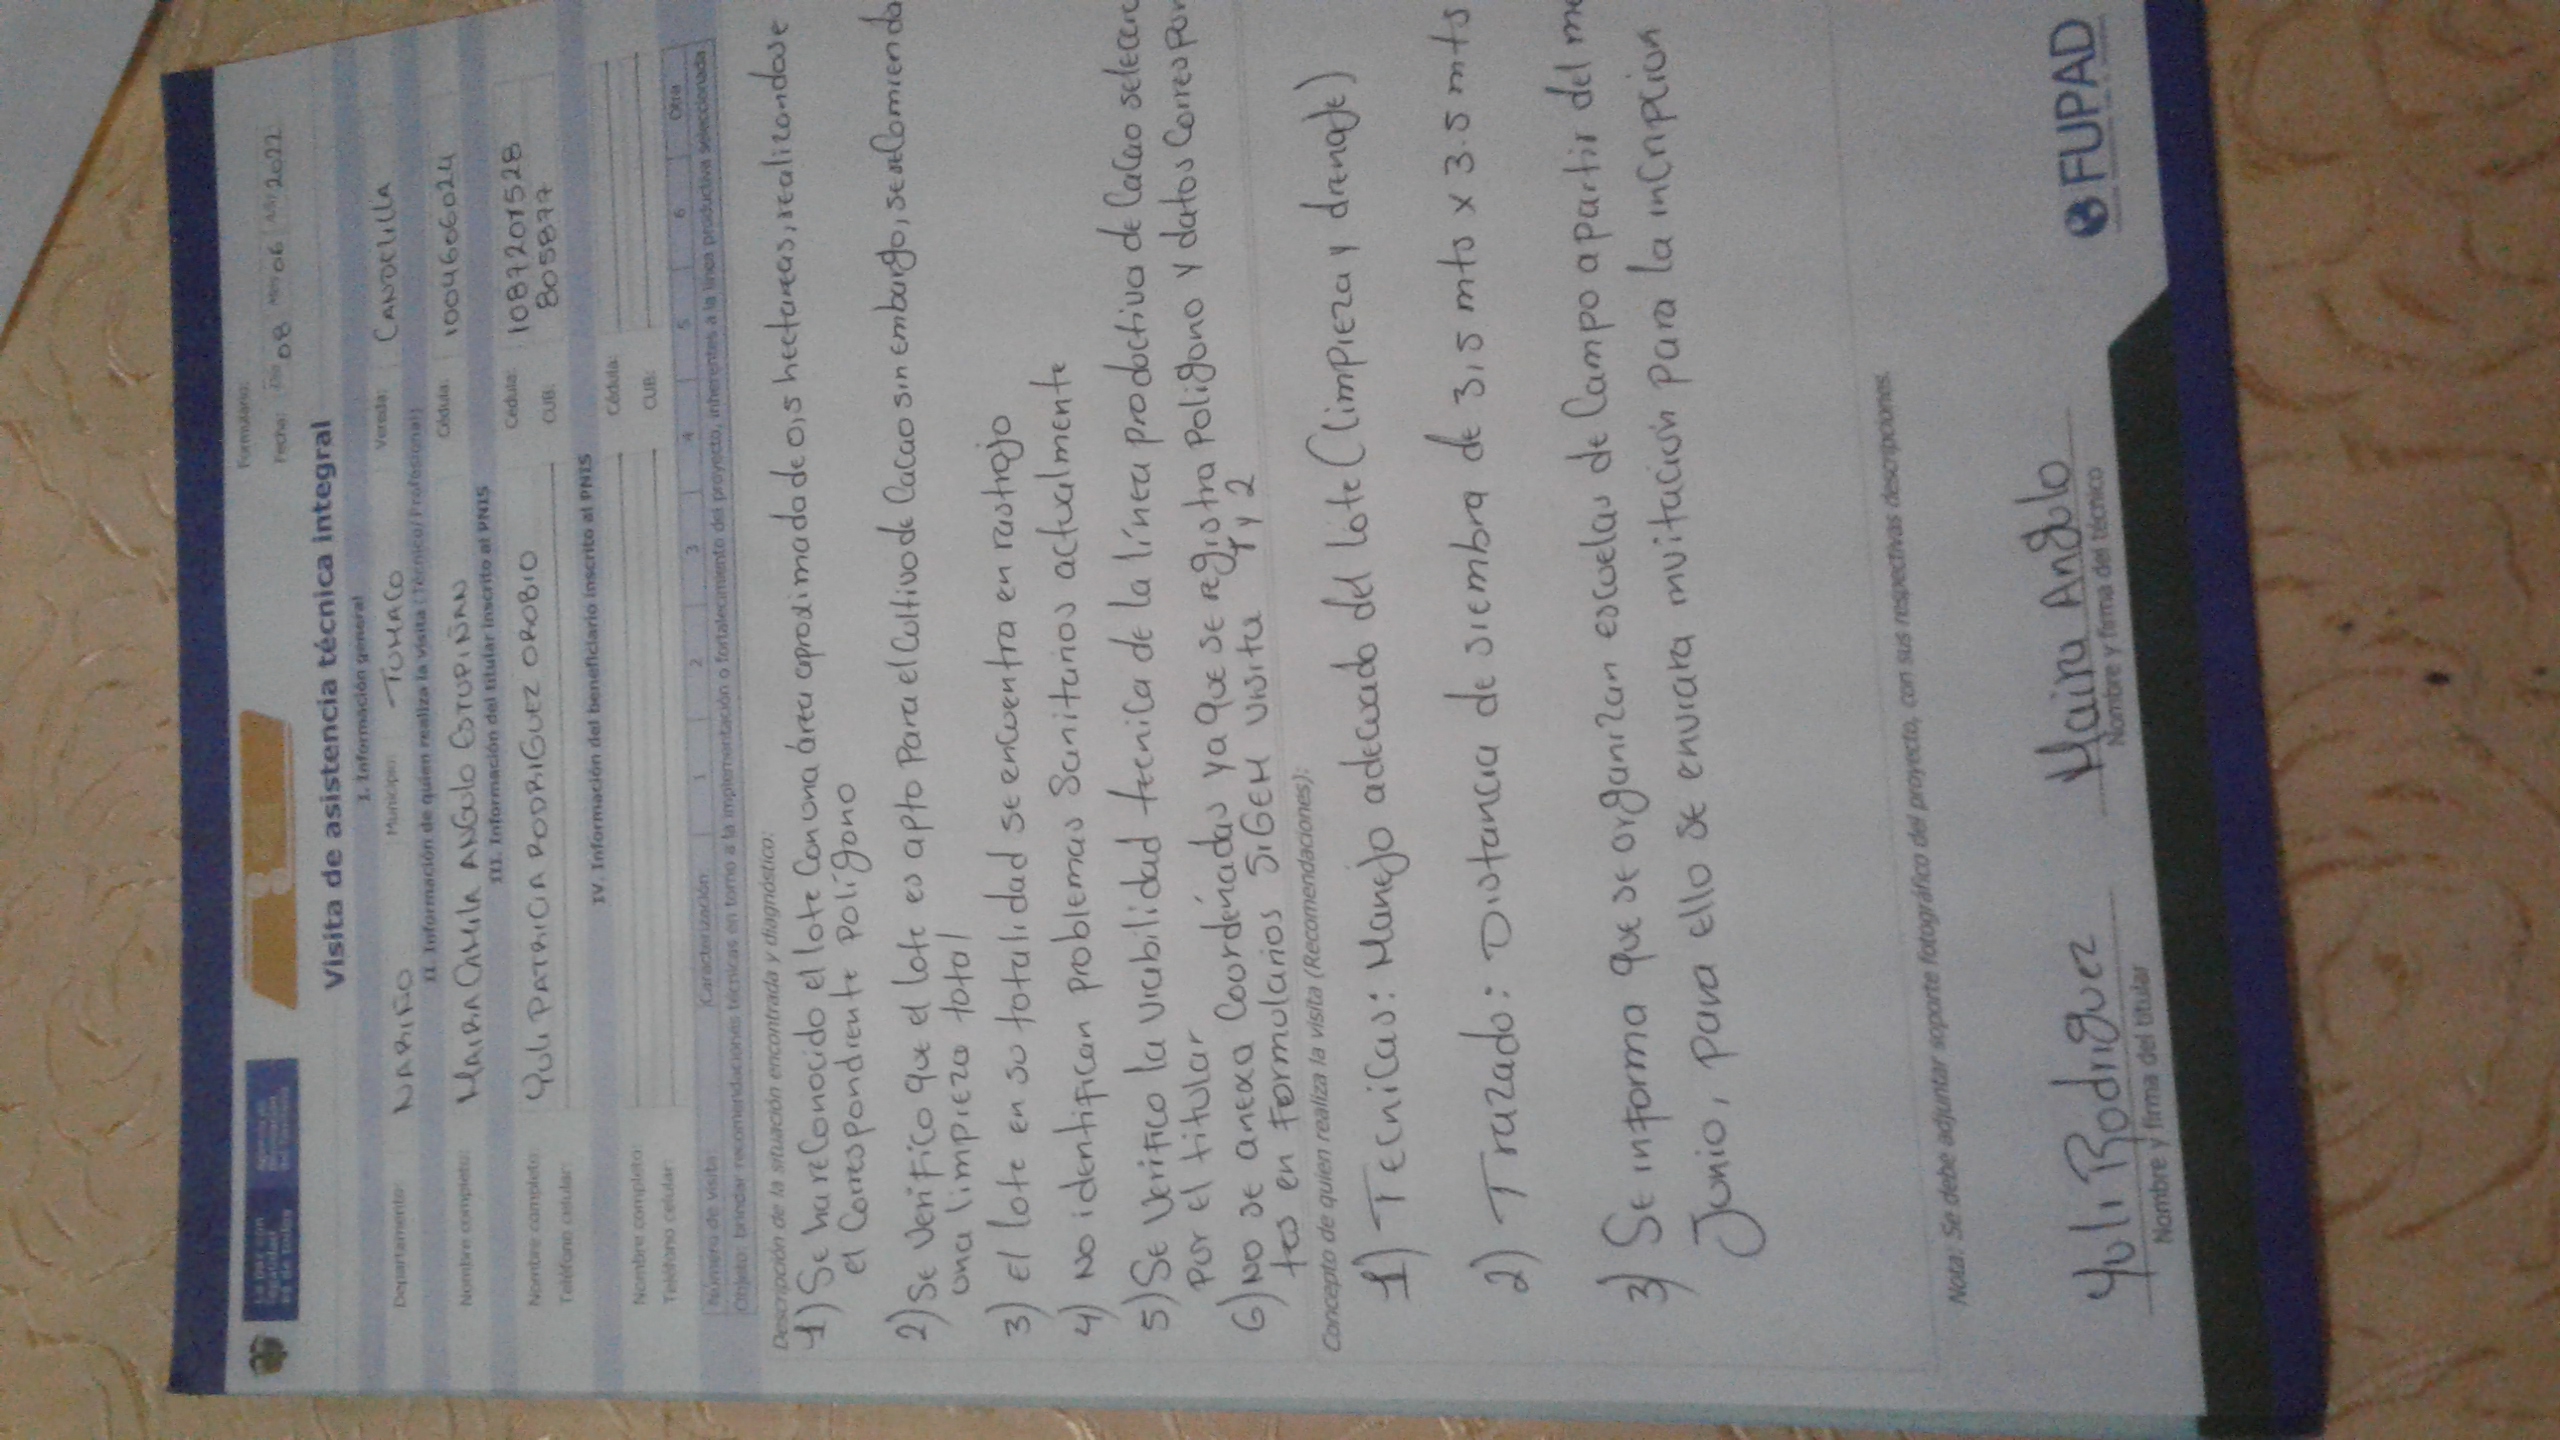 Formulario:
Fecha: Día 08 Mes 06 Año 2022
Visita de asistencia técnica integral
I. Información general
Departamento: NARIÑO Municipio: TUMACO Vereda: CANDELILLA
II. Información de quien realiza la visita (Técnico/Profesional)
Nombre completo: MAIRA CAMILA ANGULO ESTUPIÑAN Cédula: 1004606024
III. Información del titular inscrito al PNIS
Nombre completo: YULI PATRICIA RODRIGUEZ OROBIO Cédula: 1087201528
Teléfono celular: CUB: 805877
IV. Información del beneficiario inscrito al PNIS
Nombre completo: Cédula:
Teléfono celular: CUB:
Número de visita: Caracterización: 1 2 3 4 5 6 Otra
Objeto: brindar recomendaciones técnicas en torno a la implementación o fortalecimiento del proyecto, inherentes a la línea productiva seleccionada
Descripción de la situación encontrada y diagnóstico:
1) Se ha reconocido el lote con una área aprosimada de 0,5 hectareas, realizandose
el correspondiente Polígono
2) Se verifico que el lote es apto para el cultivo de cacao sin embargo, se recomienda
una limpieza total
3) el lote en su totalidad se encuentra en rastrojo
4) No identifican problemas sanitarios actualmente
5) Se verifico la viabilidad tecnica de la línea productiva de cacao
por el titular
6) No se anexa coordenadas ya que se registra Poligono y datos
tes en Formularios SIGEM visita 1 y 2
Concepto de quien realiza la visita (Recomendaciones):
1) Tecnicas: Manejo adecuado del lote (limpieza y drenaje)
2) Trazado: Distancia de siembra de 3,5 mts x 3.5 mts
3) Se informa que se organizan escuelas de campo apartir del
Junio, para ello se enviara invitación para la incripcion
Nota: Se debe adjuntar soporte fotográfico del proyecto, con sus respectivas descripciones.
Yuli Rodriguez Maira Angulo
Nombre y firma del titular Nombre y firma del técnico
FUPAD